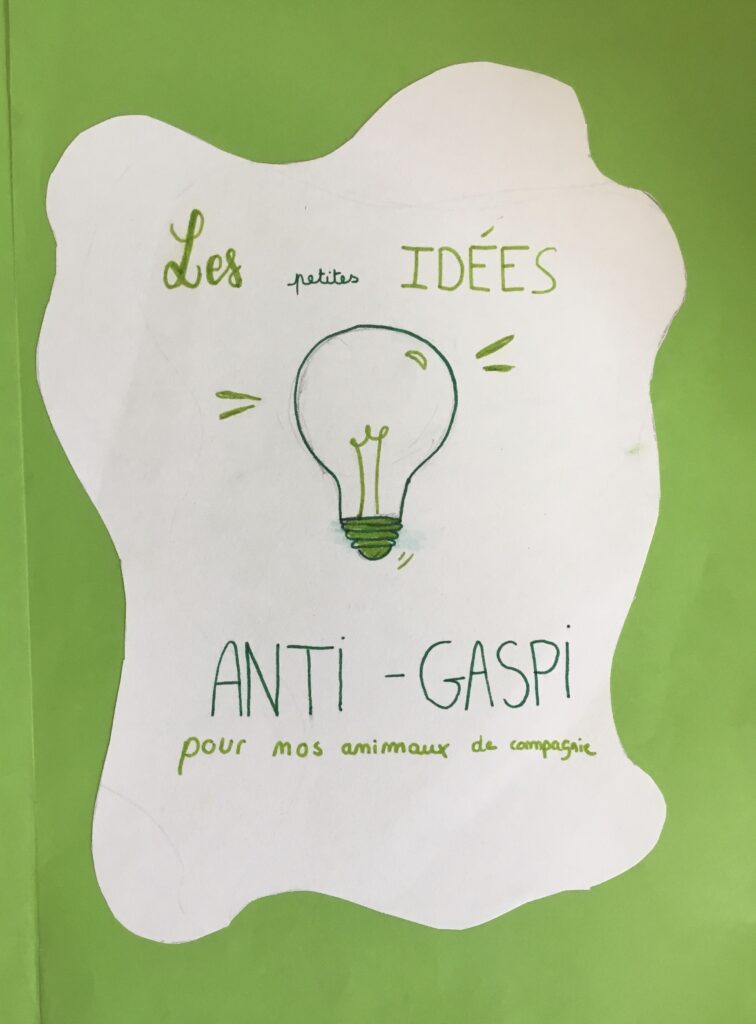 Les petites IDÉES
ANTi - GASPi
pour nos animaux de compagnie